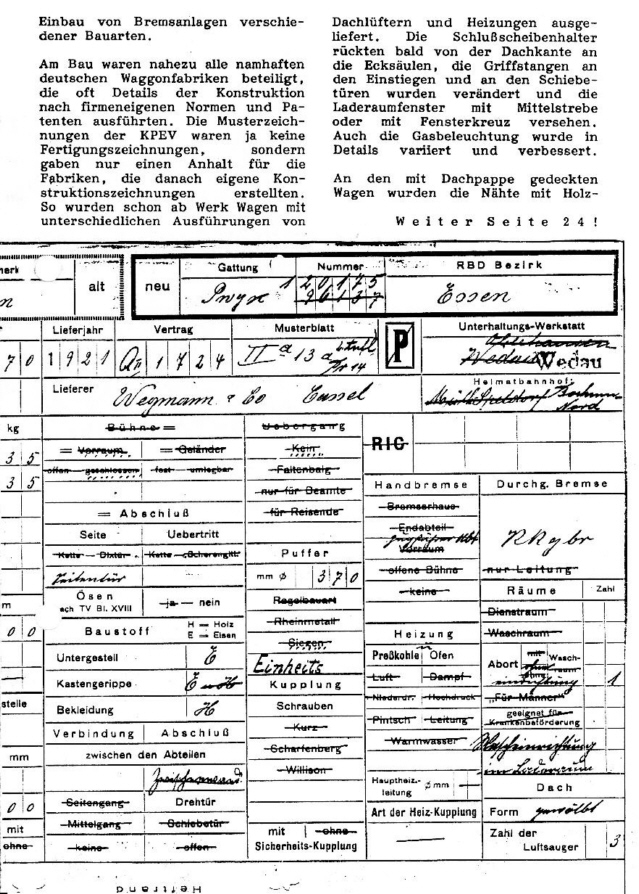 Einbau von Bremsanlagen verschie-
dener Bauarten.
Am Bau waren nahezu alle namhaften
deutschen Waggonfabriken beteiligt,
die oft Details der Konstruktion
nach firmeneigenen Normen und Pa-
tenten ausführten. Die Musterzeich-
nungen der KPEV waren ja keine
Fertigungszeichnungen, sondern
gaben nur einen Anhalt für die
Fabriken, die danach eigene Kon-
struktionszeichnungen erstellten.
So wurden schon ab Werk Wagen mit
unterschiedlichen Ausführungen von
Dachlüftern und Heizungen ausge-
liefert. Die Schlußscheibenhalter
rückten bald von der Dachkante an
die Ecksäulen, die Griffstangen an
den Einstiegen und an den Schiebe-
türen wurden verändert und die
Laderaumfenster mit Mittelstrebe
oder mit Fensterkreuz versehen.
Auch die Gasbeleuchtung wurde in
Details variiert und verbessert.
An den mit Dachpappe gedeckten
Wagen wurden die Nähte mit Holz-
Weiter Seite 24!
alt neu Gattung Nummer RBD Bezirk
Essen
Lieferjahr Vertrag Musterblatt P Unterhaltungs-Werkstatt
7 0 1921 1724 II a 13 a Wedau
Lieferer Wegmann & Co Cassel Heimatbahnhof
Nord
kg Bühne Uebergang
3 5 Vorraum Geländer Kein RIC
offen geschlossen fest umlegbar Faltenbalg
3 5 nur für Beamte Handbremse Durchg. Bremse
Abschluß für Reisende Bremserhaus
Seite Uebertritt Endabteil
Kette Kette Scherengitt. Puffer Vorraum
mm ø 370 offene Bühne nur Leitung
Ösen Regelbauart keine Räume Zahl
m nach TV Bl. XVIII ja — nein Dienstraum
0 0 Baustoff H = Holz Rheinmetall Heizung Waschraum
E = Eisen Siegen Preßkohle Ofen Abort mit Wasch-
Untergestell E Einheits ohne einrichtung 1
Kastengerippe E u H Kupplung Luft Dampf „Für Männer"
stelle Schrauben Niederdr. Hochdruck geeignet für
Bekleidung H Kurz Pintsch Leitung Krankenbeförderung
Verbindung Abschluß Scharfenberg Warmwasser
mm zwischen den Abteilen Willison im Laderaum
Hauptheiz-
leitung ø mm Dach
0 0 Seitengang Drehtür Art der Heiz-Kupplung Form gewölbt
mit Mittelgang Schiebetür mit ohne Zahl der
ohne keine offen Sicherheits-Kupplung Luftsauger 3